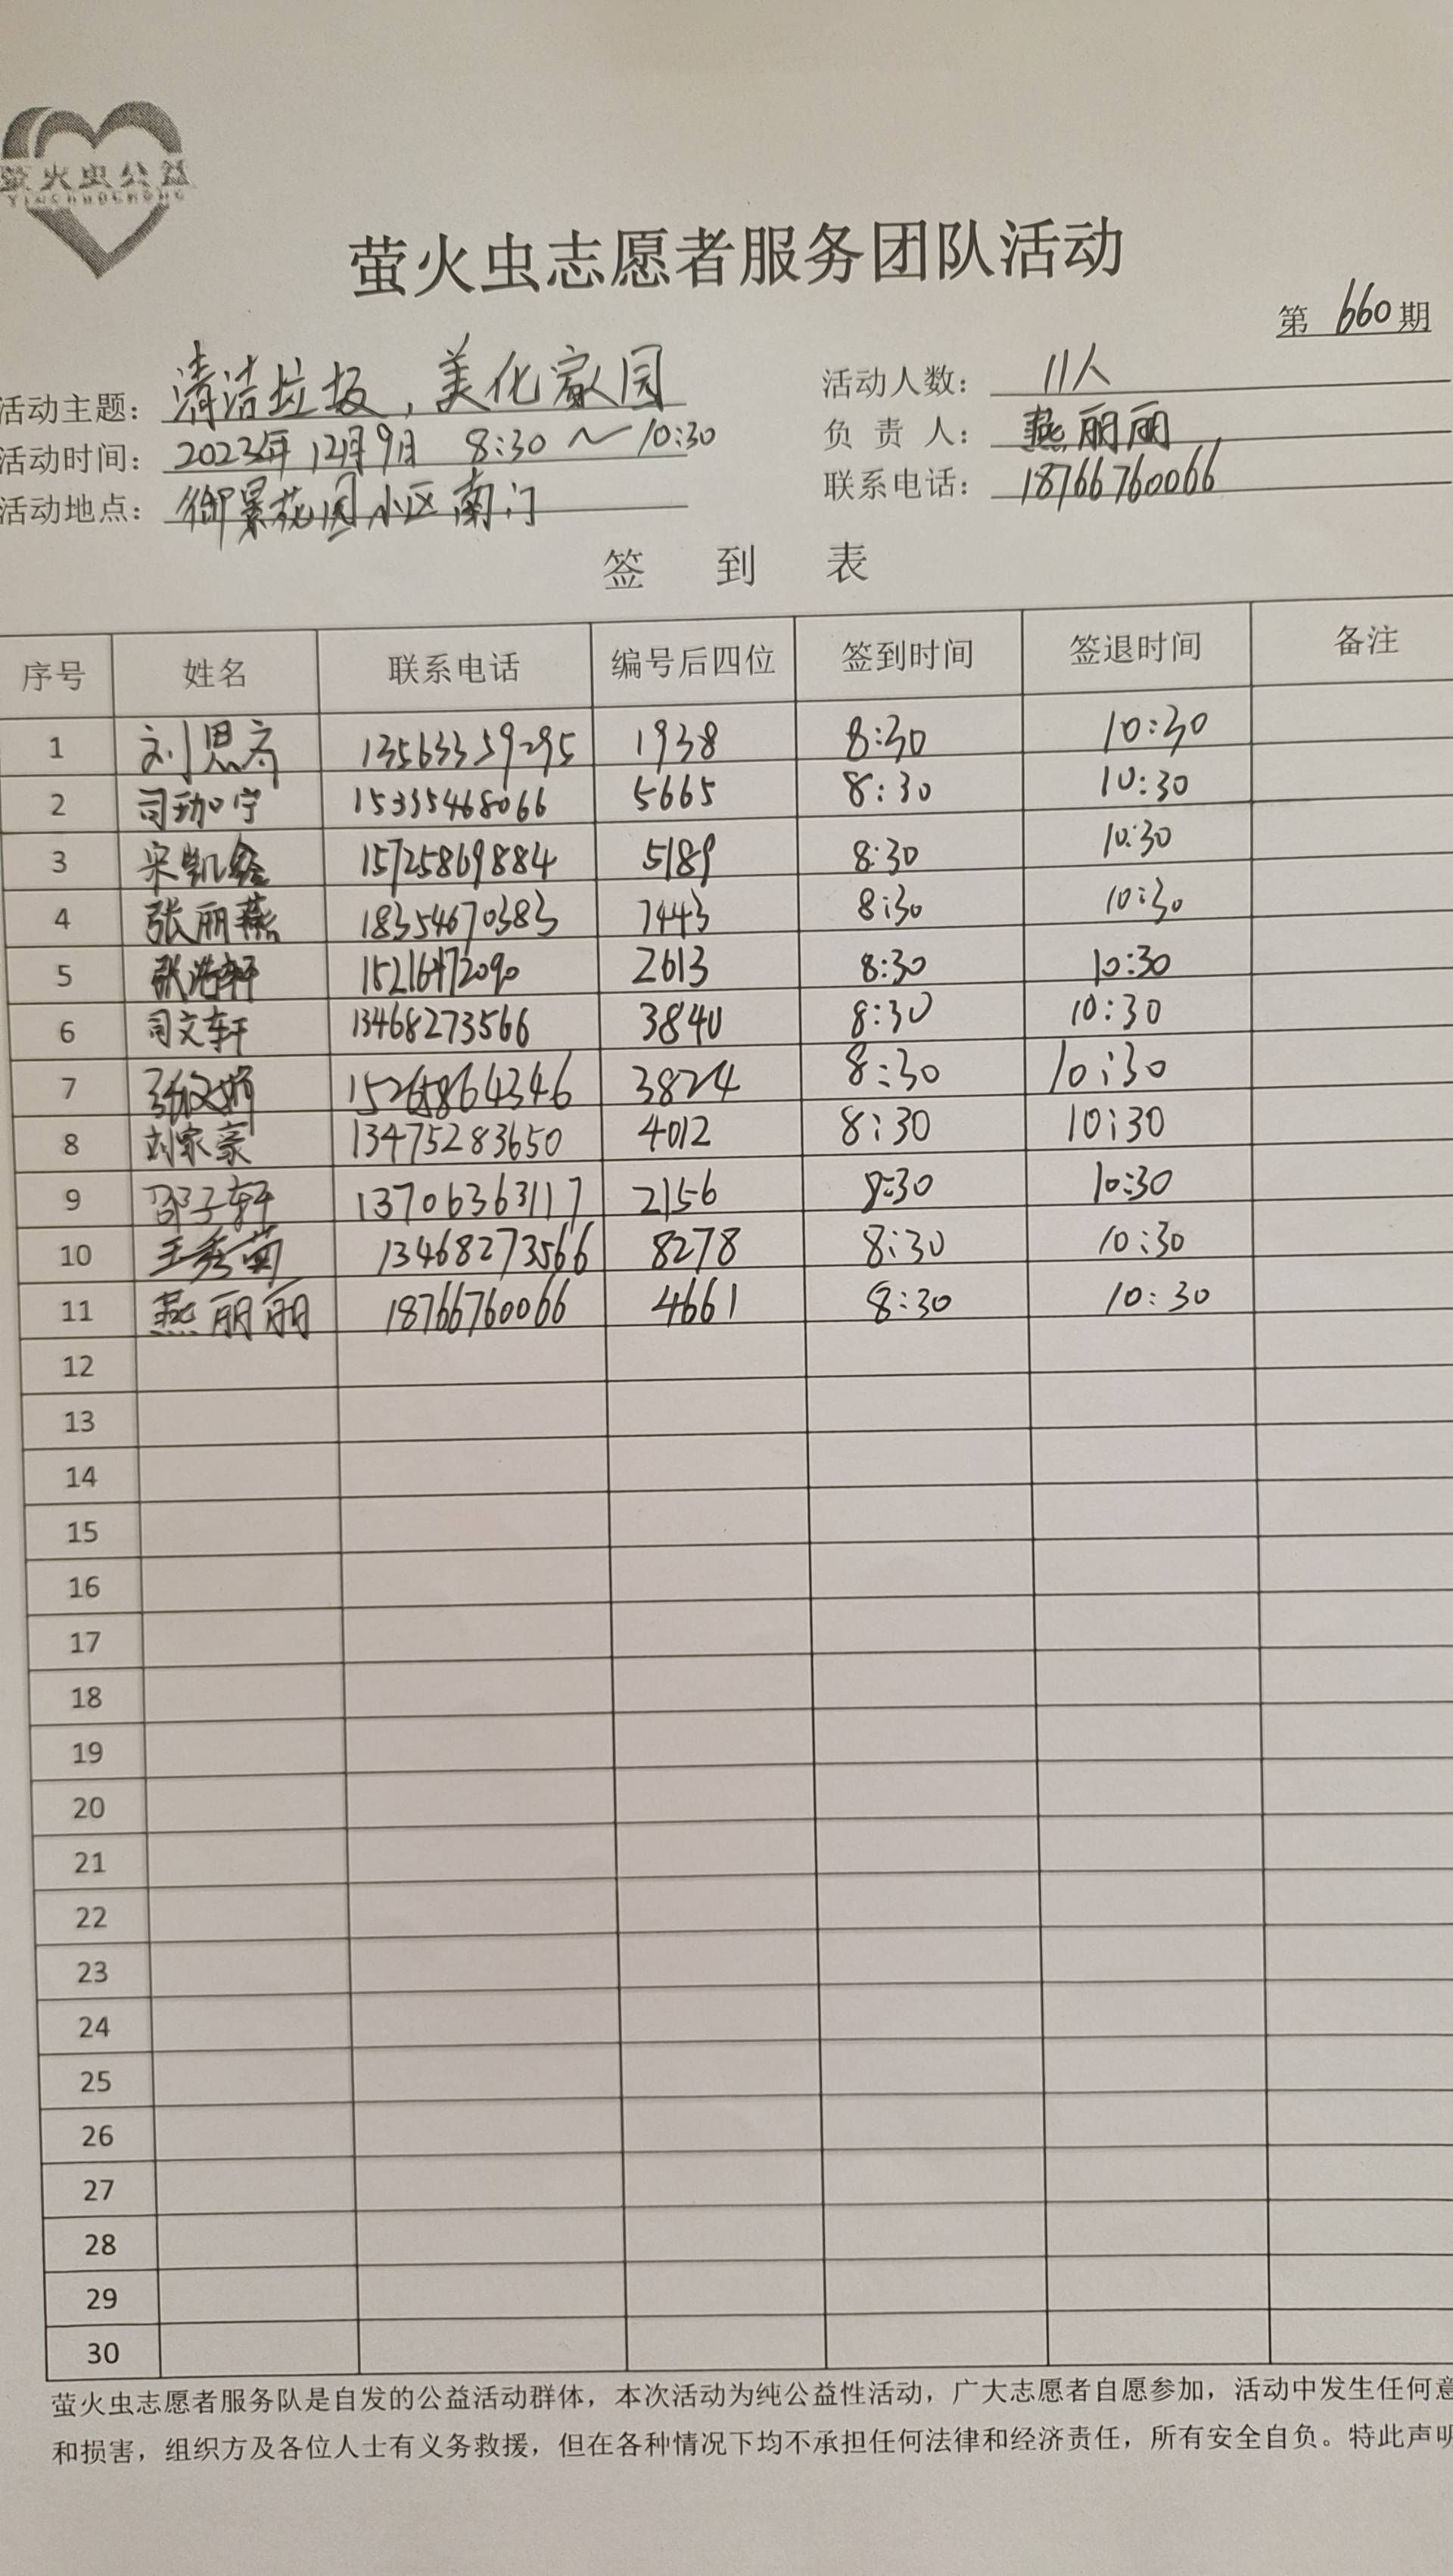 萤火虫公益
YINGHUOCHONG
萤火虫志愿者服务团队活动
第 660 期
活动主题：清洁垃圾，美化家园
活动人数：11人
活动时间：2023年12月9日 8:30～10:30
负 责 人：燕丽丽
活动地点：御景花园小区南门
联系电话：18766760066
签 到 表
序号 姓名 联系电话 编号后四位 签到时间 签退时间 备注
1 刘思齐 13563359295 1938 8:30 10:30
2 司珈宁 15335468066 5665 8:30 10:30
3 宋凯 15725869884 5189 8:30 10:30
4 张丽燕 18354670383 7443 8:30 10:30
5 张浩轩 2613 8:30 10:30
6 司文轩 13468273566 3840 8:30 10:30
7 15265864346 3824 8:30 10:30
8 刘家豪 13475283650 4012 8:30 10:30
9 邵子轩 13706363117 2156 8:30 10:30
10 王秀菊 13468273566 8278 8:30 10:30
11 燕丽丽 18766760066 4661 8:30 10:30
12
13
14
15
16
17
18
19
20
21
22
23
24
25
26
27
28
29
30
萤火虫志愿者服务队是自发的公益活动群体，本次活动为纯公益性活动，广大志愿者自愿参加，活动中发生任何意
和损害，组织方及各位人士有义务救援，但在各种情况下均不承担任何法律和经济责任，所有安全自负。特此声明